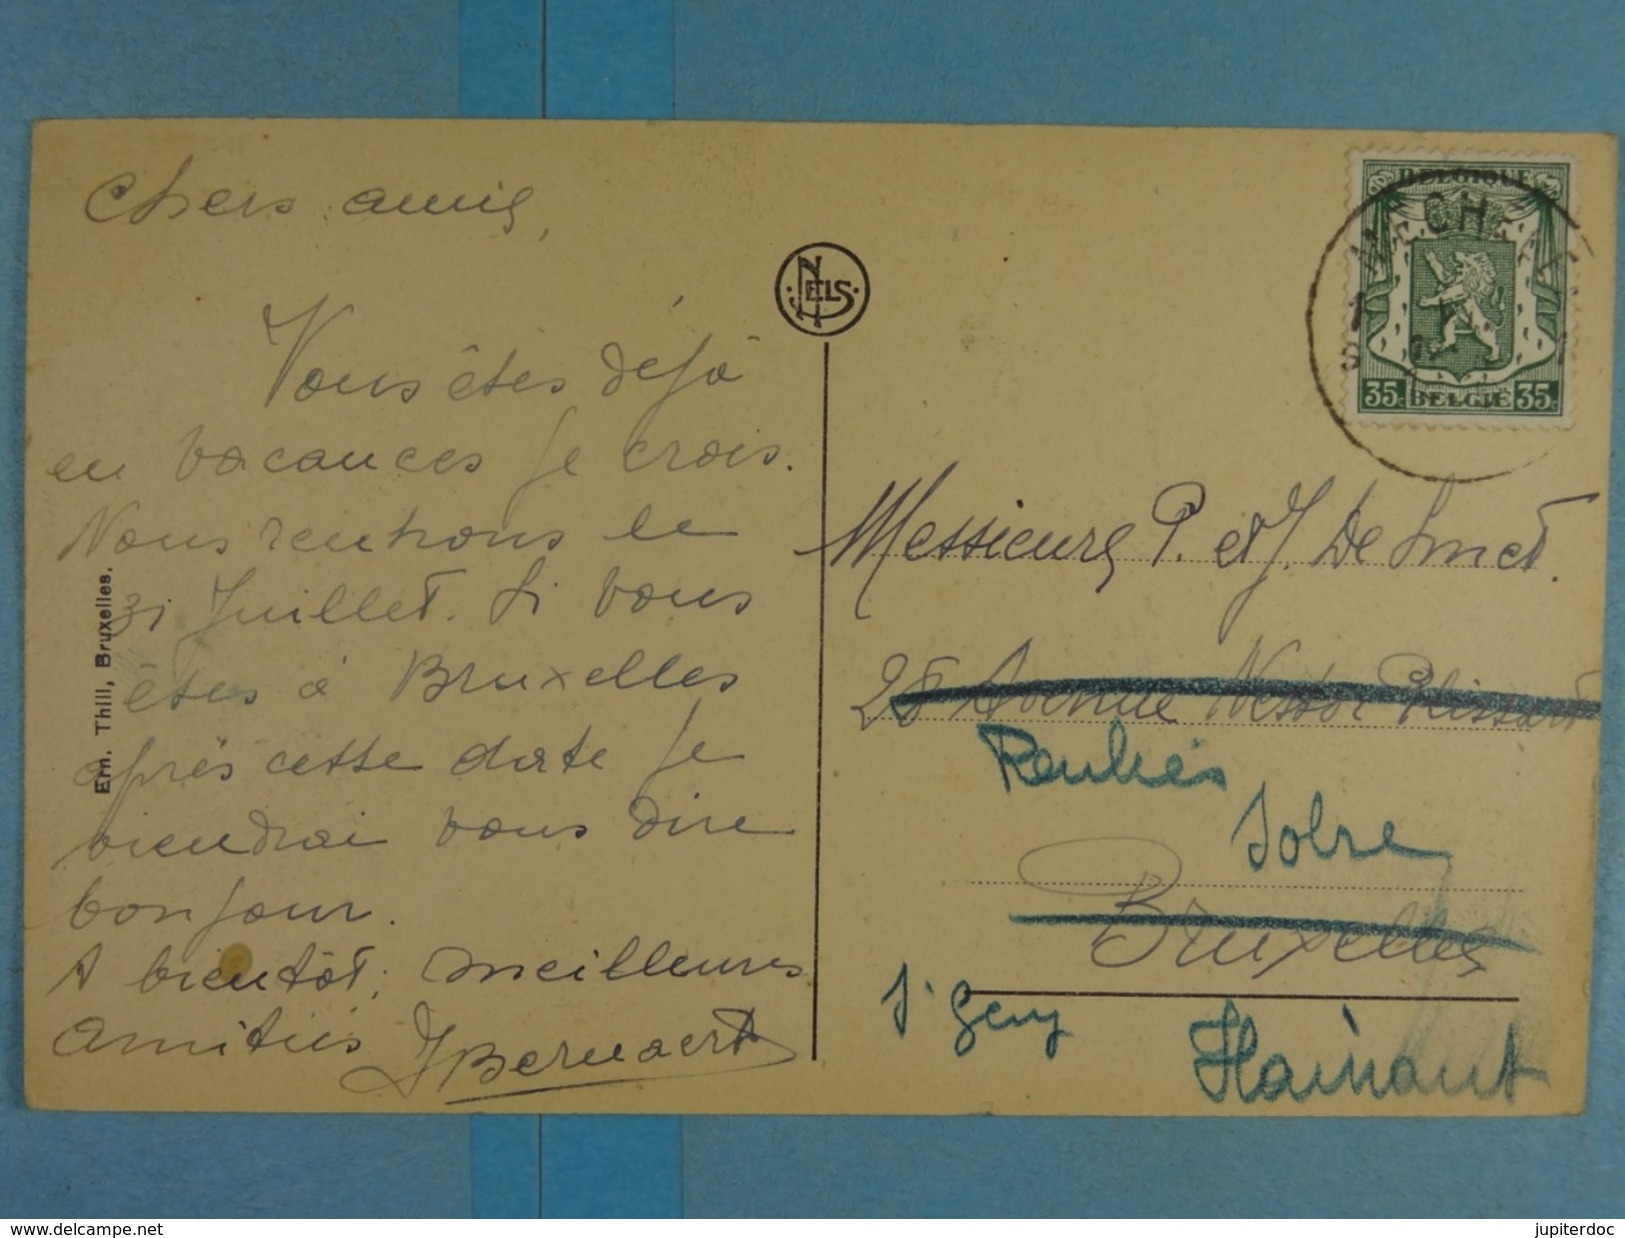 Chers amis,
Vous êtes déjà
en vacances je crois.
Nous rentrons le
31 Juillet. Si vous
êtes à Bruxelles
après cette date je
viendrai vous dire
bonjour.
A bientôt; meilleures
amitiés JBernaert
Ern. Thill, Bruxelles.
NELS
BELGIQUE
35c BELGIË 35c
MECHELEN
Messieurs P. et J. De Smet.
25 Avenue Nestor Plissart
Solre
Bruxelles
St Gery
Hainaut
www.delcampe.net
jupiterdoc